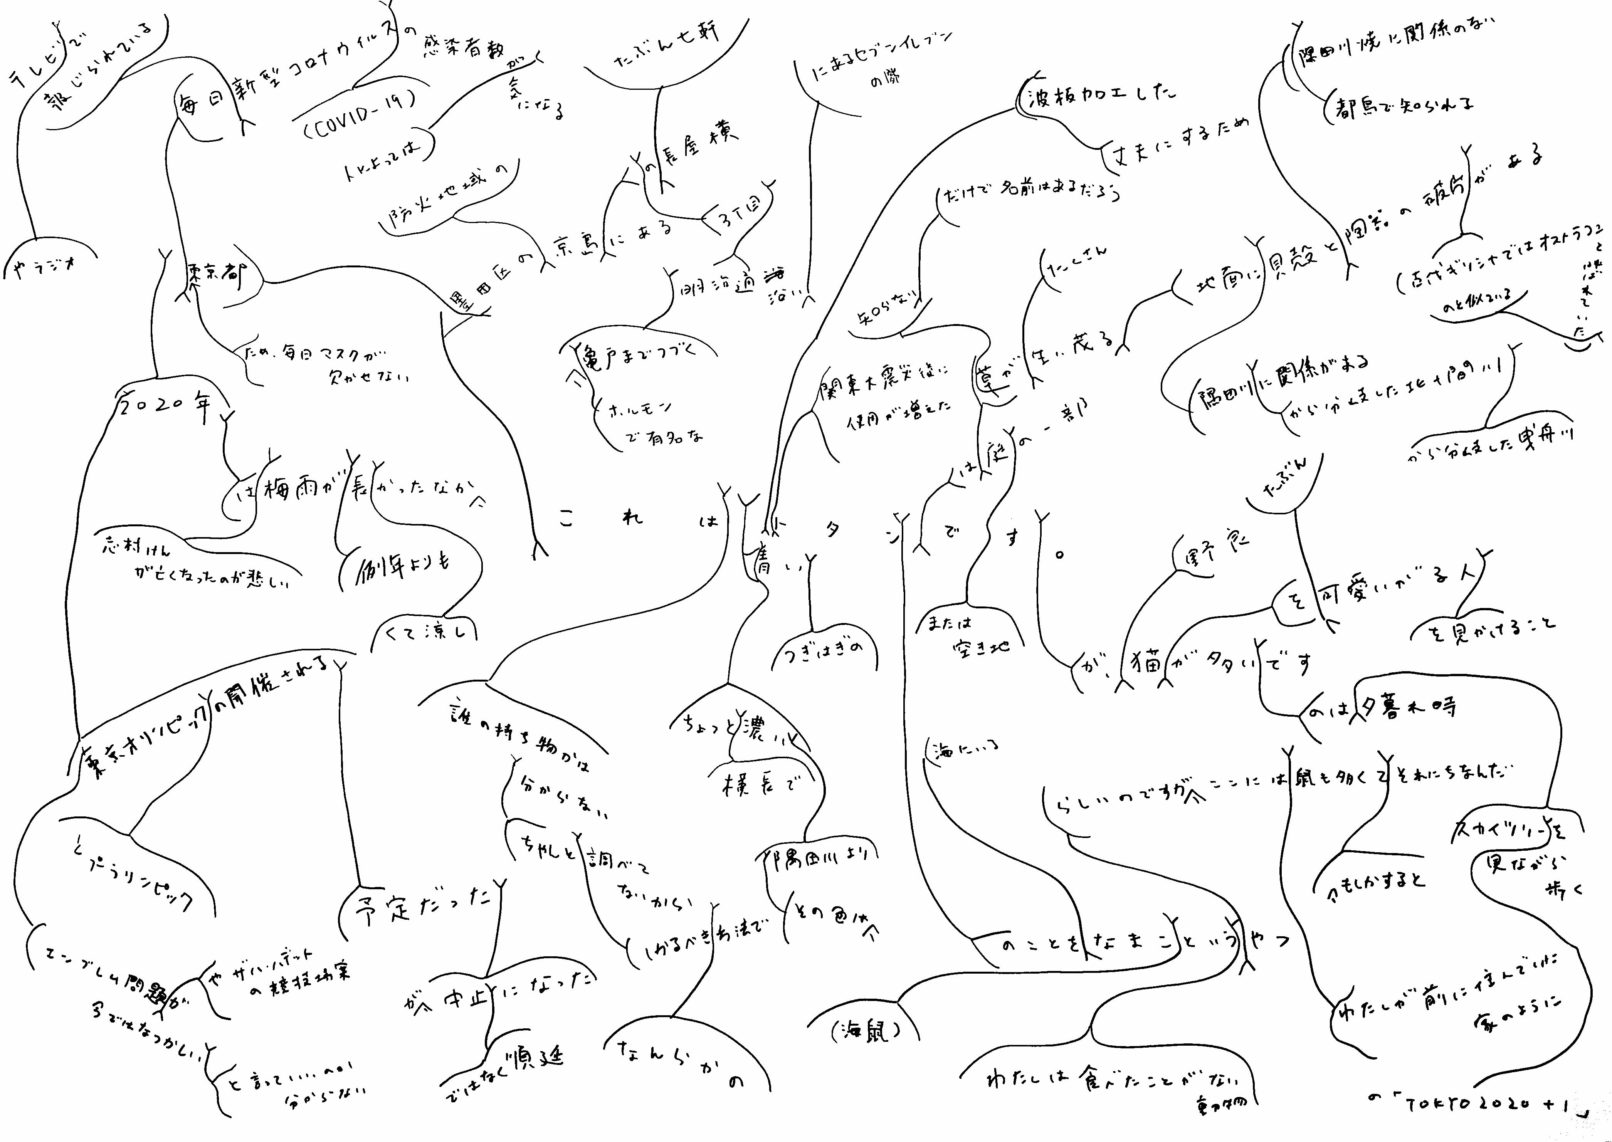 テレビで
報じられている
やラジオ
毎日
新型コロナウイルスの
感染者数
が
気
になる
(COVID-19)
人によっては
東京都
ため、毎日マスクが
欠かせない
2020年
は梅雨が長かったなか、
志村けん
が亡くなったのが悲しい
例年よりも
くて涼し
東京オリンピックの開催される
とパラリンピック
エンブレム問題が
今ではなつかしい
やザハ・ハディッドの
の競技場案
と言っていいのか
分からない
予定だった
が、中止になった
ではなく順延
防火地域の
墨田区の京島にある
の長屋横
たぶん七軒
3丁目
明治通
沿い
亀戸までつづく
ホルモン
で有名な
にあるセブンイレブン
の隣
これは
トタンです。
青い
つぎはぎの
ちょっと濃い
横長で
隅田川より
その色は、
誰の持ち物かは
分からない
ちゃんと調べて
ないから
しかるべき方法で
なんらかの
波板加工した
丈夫にするため
関東大震災後に
使用が増えた
だけで名前はあるだろう
知らない
草が生い茂る
たくさん
は庭の一部
または
空き地
地面に貝殻と陶器の破片がある
隅田川焼に関係のない
都鳥で知られる
(古代ギリシャではオストラコン
と呼ばれてい
た)
のと似ている
隅田川に関係がある
から分岐した北十間川
から分岐した曳舟川
が、猫が多いです
野良
を可愛いがる人
たぶん
を見かけること
のは夕暮れ時
スカイツリーを
見ながら
歩く
海にいる
のことをなまこというやつ
(海鼠)
らしいのですが、ここには鼠も多くてそれにちなんだ
、もしかすると
わたしが前に住んでいた
家のように
わたしは食べたことがない
動物
の「TOKYO2020+1」